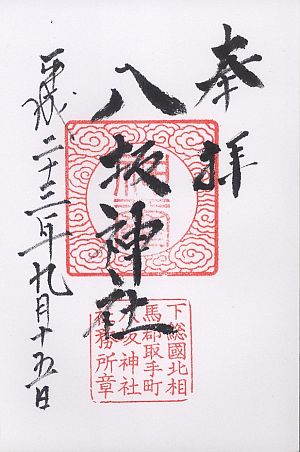 奉拝
八坂神社
平成二十三年九月十五日
下総國北相
馬郡取手町
八坂神社
社務所章